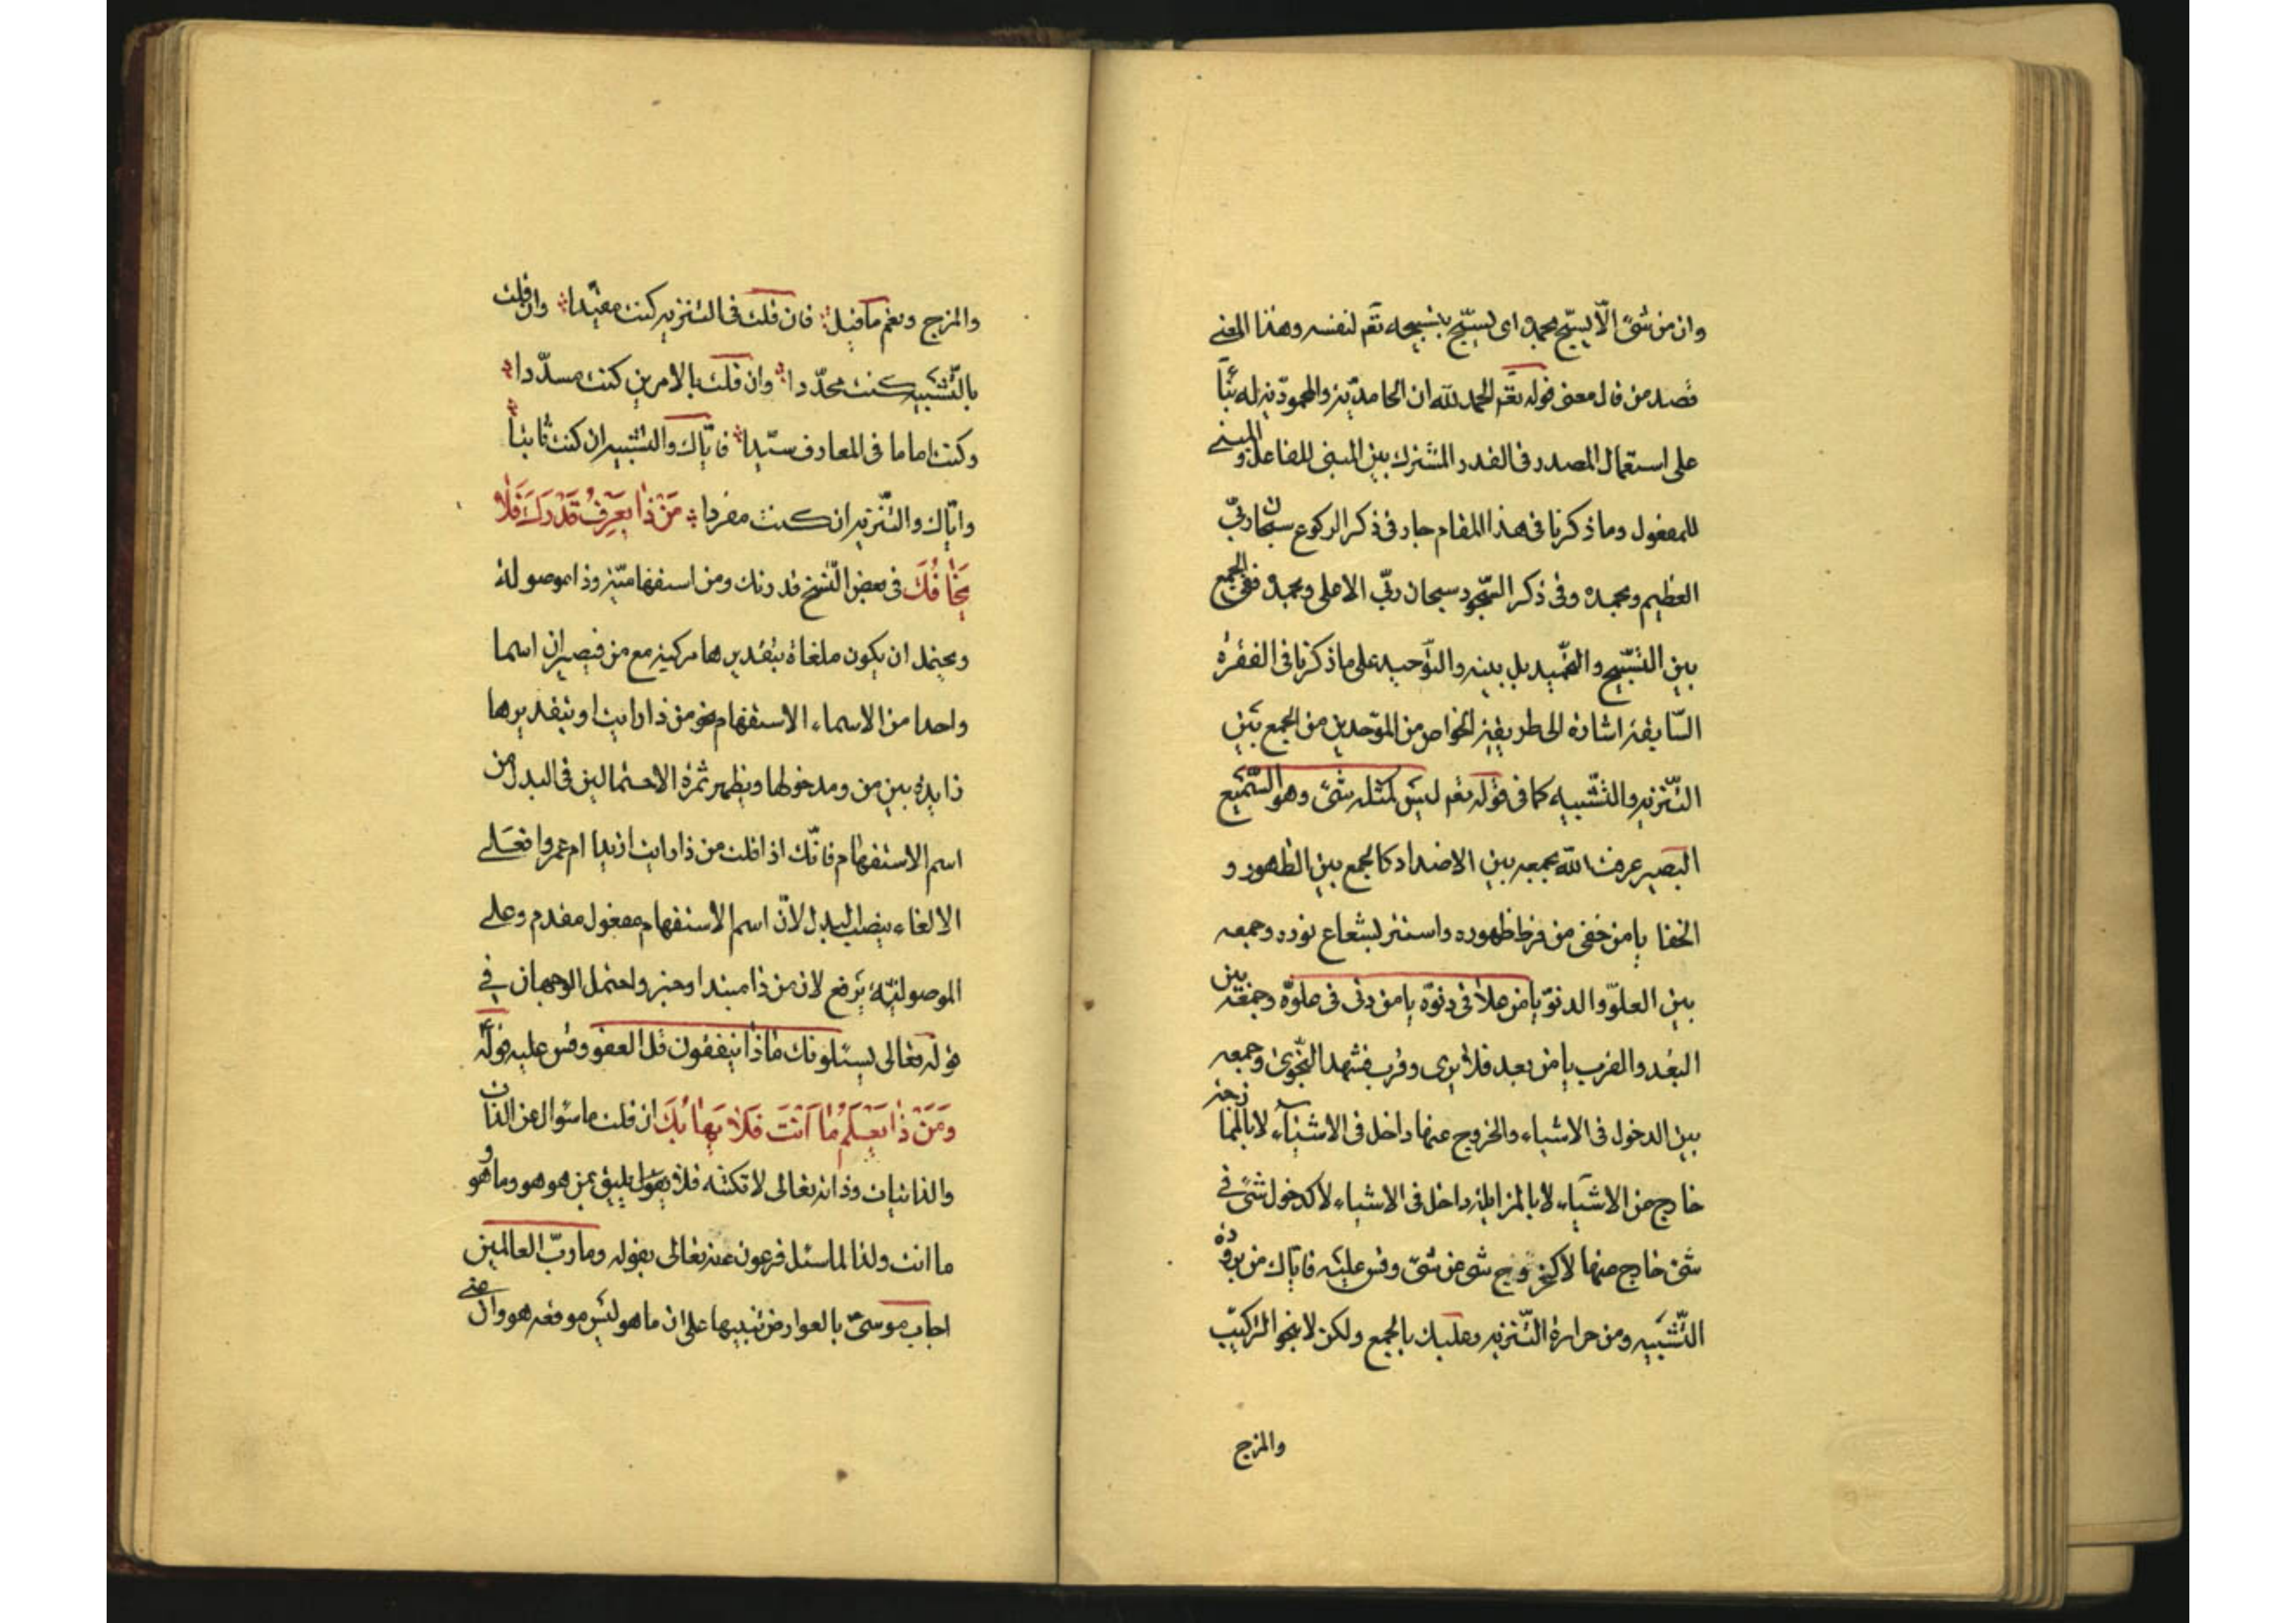 وان من شئ الّا يسبّح بحمده اى يسبّح بتسبيحه تعم لنفسه وهذا المعنى
قصد من قال معنى قوله تعم الحمد لله ان الحامديّة والمحموديّة له بناً
على استعمال المصدر فى القدر المشترك بين المبنى للفاعل والمبنى
للمفعول وما ذكرنا فى هذا المقام جار فى ذكر الركوع سبحان ربّى
العظيم وبحمده وفى ذكر السّجود سبحان ربّى الاعلى وبحمده ففى الجمع
بين التّسبيح والتّحميد بل بينه والتّوحيد على ما ذكرنا فى الفقرة
السّابقة اشارة الى طريقة الخواص من الموّحدين من الجمع بين
التّنزيه والتّشبيه كما فى قوله تعم ليس كمثله شئ وهو السّميع
البصير عرفت الله بجمعه بين الاضداد كالجمع بين الظهور و
الخفا يا من خفى من فرط ظهوره واستتر لشعاع نوره وجمعه
بين العلوّ والدنوّ يا من علا فى دنوّه يا من دنى فى علوّه وجمعه بين
البُعد والقرب يا من بعد فلا يرى وقرب فشهد النّجوى وجمعه
بين الدخول فى الاشياء والخروج عنها داخل فى الاشيآء لا بالممازجة
خارج عن الاشيآء لا بالمزايلة داخل فى الاشياء لا كدخول شئ فى
شئ خارج عنها لا كخروج شئ عن شئ وقس عليه فايّاك من برودة
التّشبيه ومن حرارة التّنزيه وعليك بالجمع ولكن لا بنحو التركيب
والمزج
والمزج ونعم ما قيل فان قلت فى التنزيه كنت مقيّدا وان قلت
بالتّشبيه كنت محدّدا وان قلت بالامرين كنت مسدّدا
وكنت اماما فى المعارف سيّدا فايّاك والتشبيه ان كنت ثانياً
وايّاك والتّنزيه ان كنت مفردا مَنْ ذٰا يَعْرِفُ قَدْرَكَ فَلاٰ
يَخٰافُكَ فى بعض النّسخ قدرتك ومن استفهاميّة وذا موصولة
ويحتمل ان يكون ملغاة بتقديرها مركبة مع من فيصيران اسما
واحدا من الاسماء الاستفهام نحو من ذا رايت او بتقديرها
زايدة بين من ومدخولها ويظهر ثمرة الاحتمالين فى البدل من
اسم الاستفهام فانّك اذا قلت من ذا رايت ازيدا ام عمروا فعلى
الالغاء ينصب البدل لانّ اسم الاستفهام مفعول مقدم وعلى
الموصوليّة يرفع لان من ذا مبتدا وخبر واحتمل الوجهان فى
قوله تعالى يسئلونك ماذا ينفقون قل العفو وقس عليه قوله
وَمَنْ ذٰا يَعْلَمُ مٰا اَنْتَ فَلاٰ يَهٰابُكَ ان قلت ما سؤال عن الذات
والذاتيات وذاته تعالى لا تكتنه فلا يقول يليق بمن هو هو وما هو
ما انت ولذا لما سئل فرعون عنه تعالى بقوله وما ربّ العالمين
اجاب موسىّ بالعوارض تنبيها على ان ما هو ليس موقعه هو وال